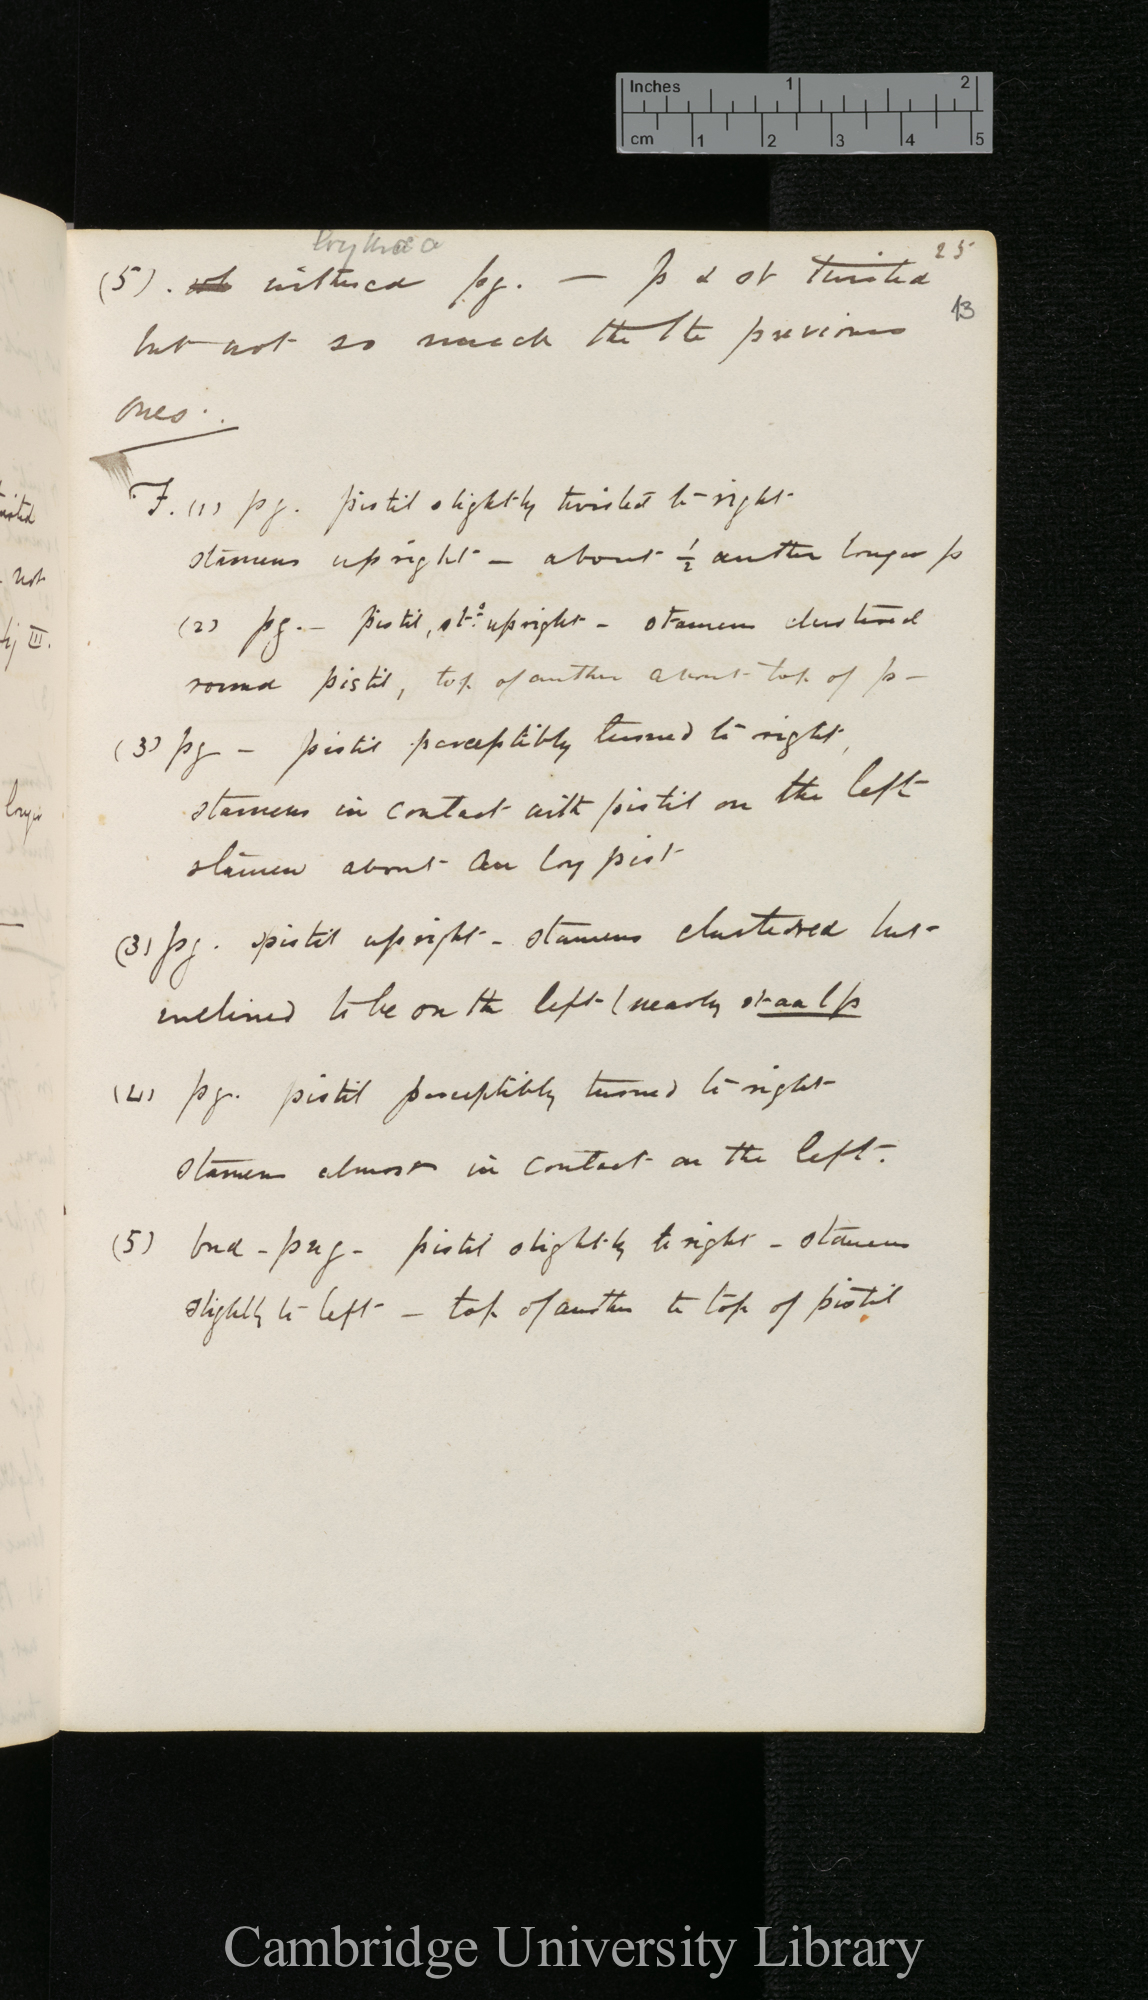 Inches 1 2
cm 1 2 3 4 5
Erythraea
25
(5). withered pg. — p & st twisted
13
but not so much the the previous
ones.
F. (1) pg. pistil slightly twisted to right
stamens upright — about ½ anther longer p
(2) pg. — pistil, sts upright — stamens clustered
round pistil, top of anther about top of p —
(3) pg — pistil perceptibly turned to right,
stamens in contact with pistil on the left
stamen about an long pist
(3) pg. pistil upright — stamens clustered but
inclined to be on the left (nearly st aa l p
(4) pg. pistil perceptibly turned to right
stamens almost in contact on the left.
(5) bud - pug - pistil slightly to right — stamens
slightly to left — top of anther to top of pistil
not
III.
longer
Cambridge University Library